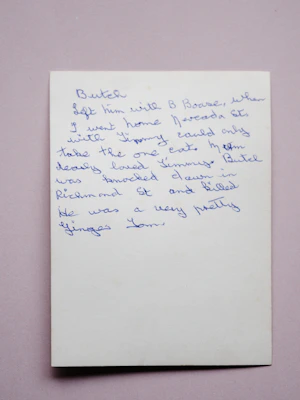 Butch
Left him with B Brase, when
I went home Nevada St.
with Timmy could only
take the one cat. Mum
dearly loved Timmy. Butch
was knocked down in
Richmond St and killed
He was a very pretty
Ginger Tom.